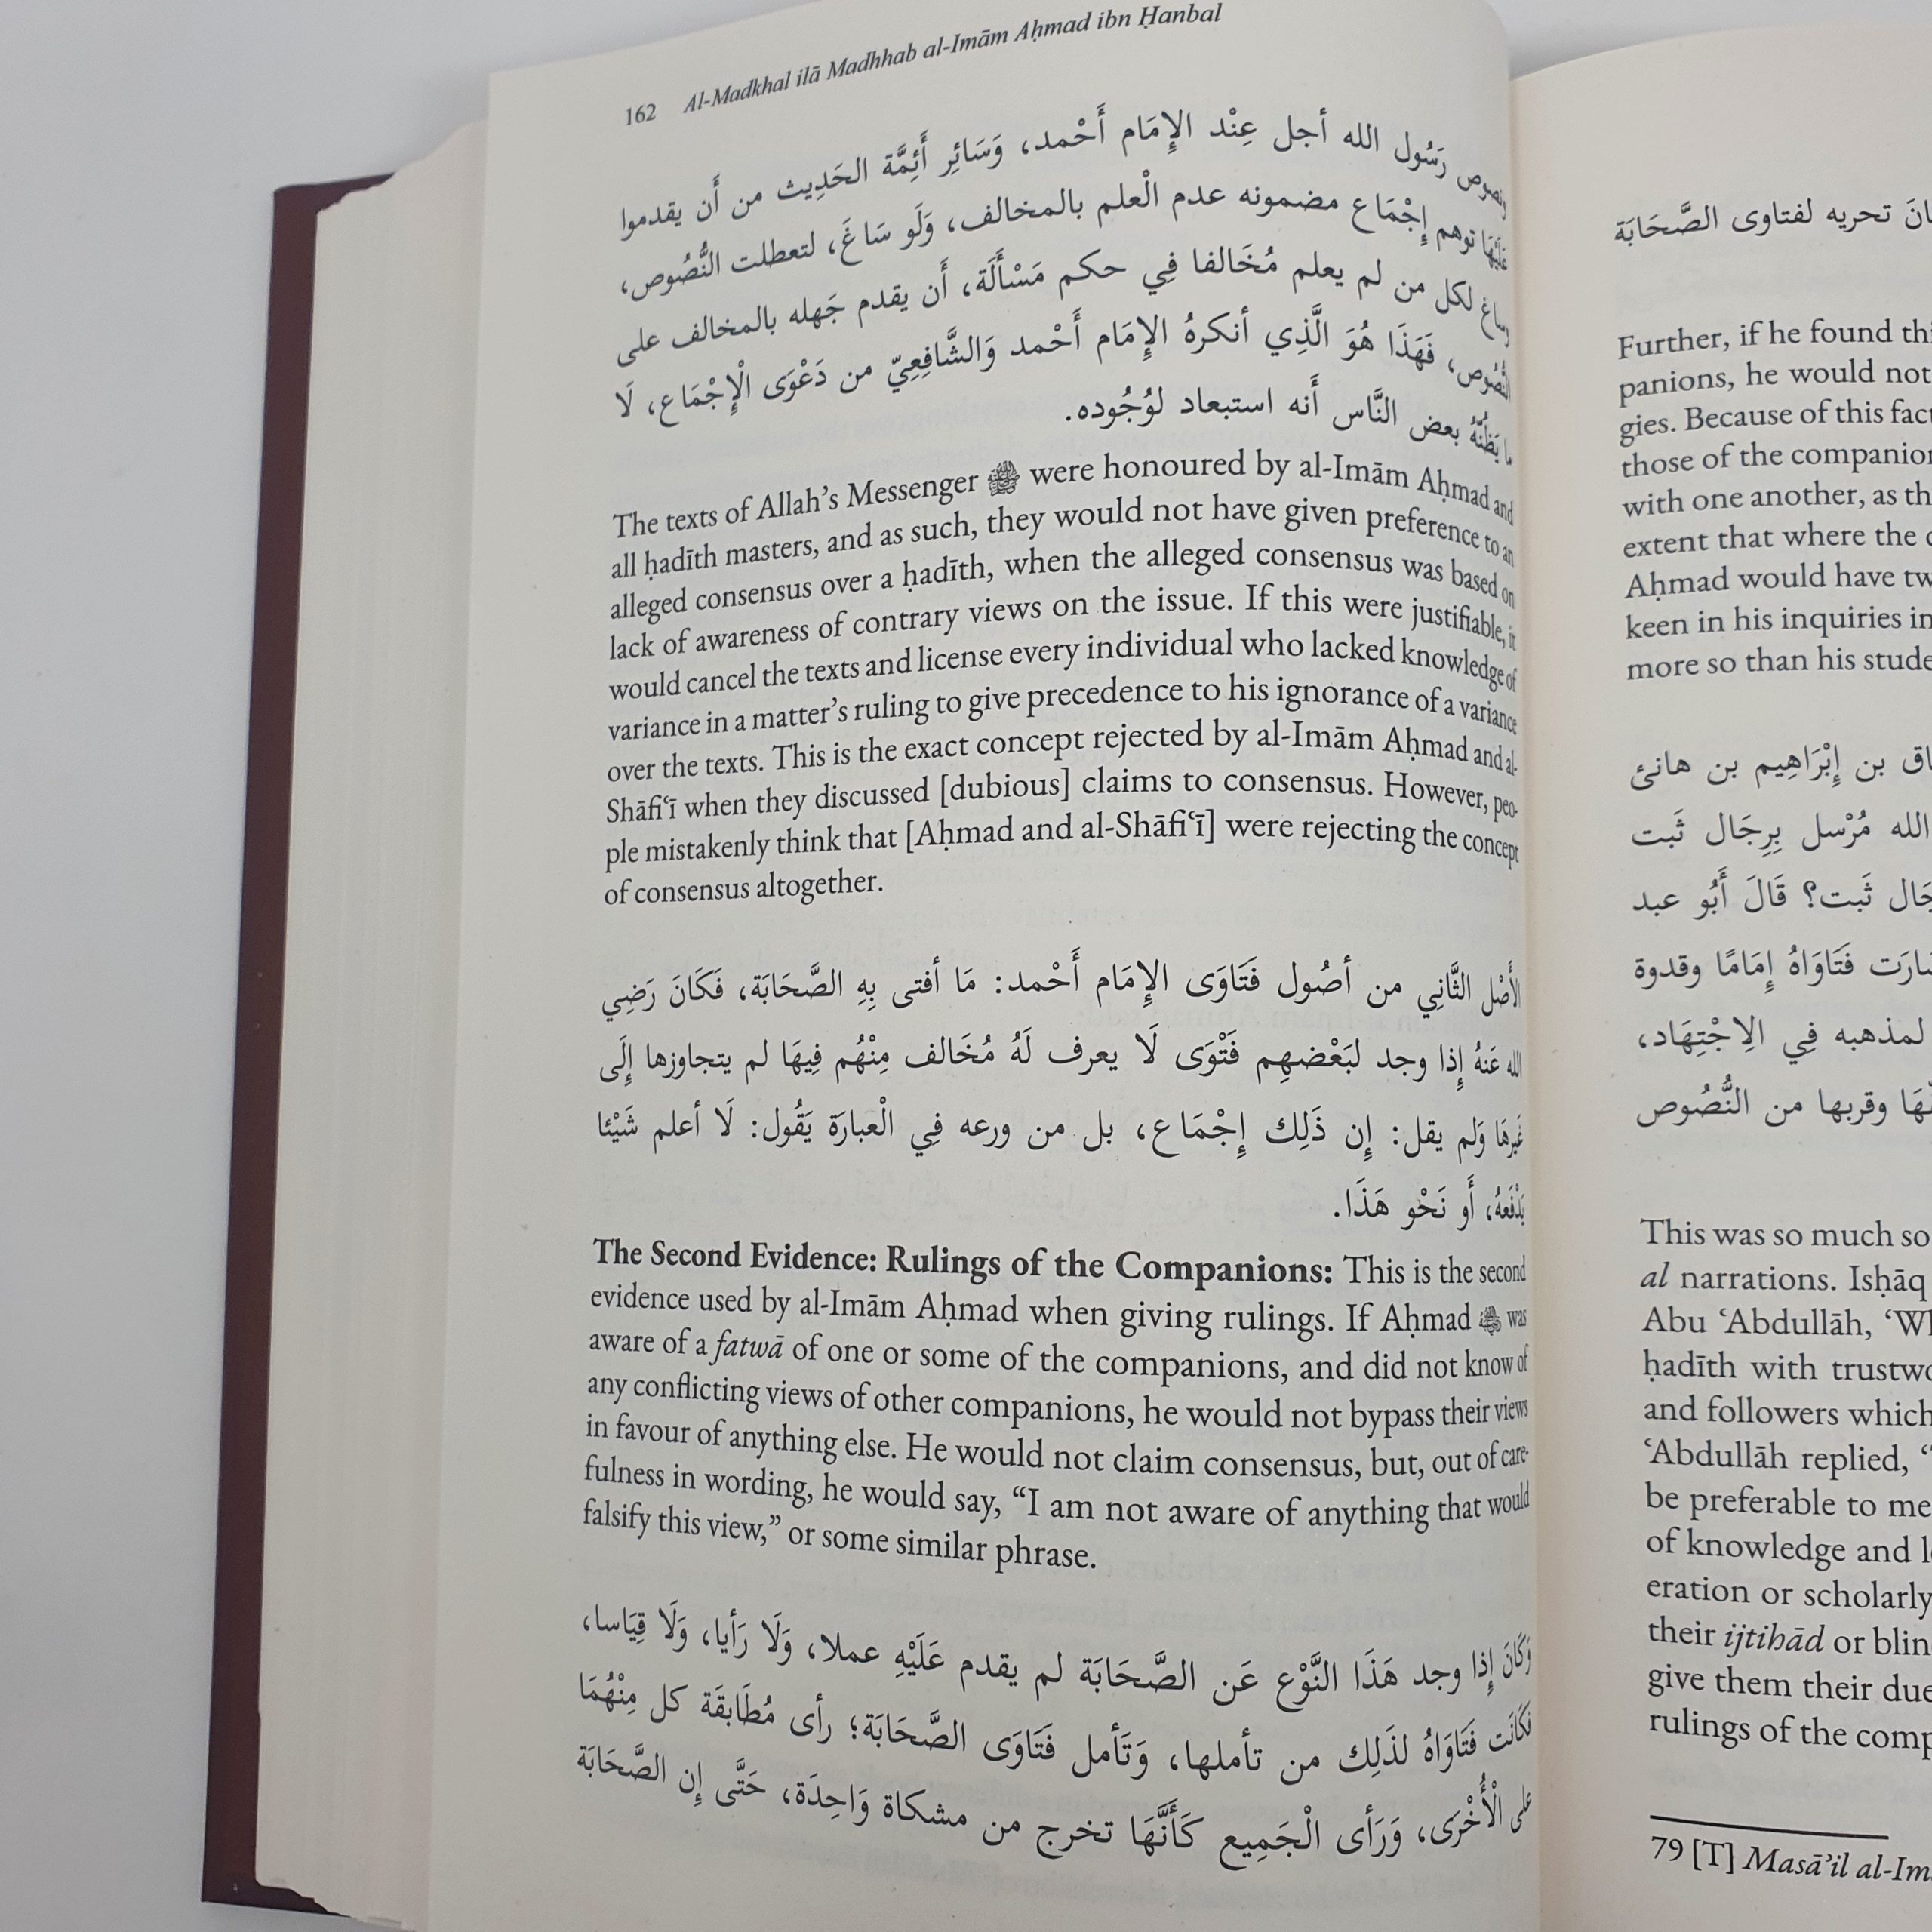 162 Al-Madkhal ilā Madhhab al-Imām Aḥmad ibn Ḥanbal
ونصوص رَسُول الله أجل عِنْد الإِمَام أَحْمد، وَسَائِر أَئِمَّة الحَدِيث من أَن يقدموا
عَلَيْهَا توهم إِجْمَاع مضمونه عدم الْعلم بالمخالف، وَلَو سَاغَ، لتعطلت النُّصُوص،
وساغ لكل من لم يعلم مُخَالفا فِي حكم مَسْأَلَة، أَن يقدم جَهله بالمخالف على
النُّصُوص، فَهَذَا هُوَ الَّذِي أنكرهُ الإِمَام أَحْمد وَالشَّافِعِيّ من دَعْوَى الْإِجْمَاع، لَا
مَا يَظُنُّهُ بعض النَّاس أَنه استبعاد لوُجُوده.
The texts of Allah’s Messenger ﷺ were honoured by al-Imām Aḥmad and
all ḥadīth masters, and as such, they would not have given preference to an
alleged consensus over a ḥadīth, when the alleged consensus was based on
lack of awareness of contrary views on the issue. If this were justifiable, it
would cancel the texts and license every individual who lacked knowledge of
variance in a matter’s ruling to give precedence to his ignorance of a variance
over the texts. This is the exact concept rejected by al-Imām Aḥmad and al-
Shāfiʿī when they discussed [dubious] claims to consensus. However, peo-
ple mistakenly think that [Aḥmad and al-Shāfiʿī] were rejecting the concept
of consensus altogether.
الأَصْل الثَّانِي من أصُول فَتَاوَى الإِمَام أَحْمد: مَا أفتى بِهِ الصَّحَابَة، فَكَانَ رَضِي
الله عَنهُ إِذا وجد لبَعْضهِم فَتْوَى لَا يعرف لَهُ مُخَالف مِنْهُم فِيهَا لم يتجاوزها إِلَى
غَيرهَا وَلم يقل: إِن ذَلِك إِجْمَاع، بل من ورعه فِي الْعبارَة يَقُول: لَا أعلم شَيْئا
يَدْفَعهُ، أَو نَحْو هَذَا.
The Second Evidence: Rulings of the Companions: This is the second
evidence used by al-Imām Aḥmad when giving rulings. If Aḥmad was
aware of a fatwā of one or some of the companions, and did not know of
any conflicting views of other companions, he would not bypass their views
in favour of anything else. He would not claim consensus, but, out of care-
fulness in wording, he would say, “I am not aware of anything that would
falsify this view,” or some similar phrase.
وَكَانَ إِذا وجد هَذَا النَّوْع عَن الصَّحَابَة لم يقدم عَلَيْهِ عملا، وَلَا رَأيا، وَلَا قِيَاسا،
فَكَانَت فَتَاوَاهُ لذَلِك من تأملها، وَتَأمل فَتَاوَى الصَّحَابَة؛ رأى مُطَابقَة كل مِنْهُمَا
على الْأُخْرَى، وَرَأى الْجَمِيع كَأَنَّهَا تخرج من مشكاة وَاحِدَة، حَتَّى إِن الصَّحَابَة
تحريه لفتاوى الصَّحَابَة
Further, if he found
panions, he would not
gies. Because of this fact
those of the
with one another, as
extent that where the
Aḥmad would have
keen in his inquiries
more so than his
بن إِبْرَاهِيم بن هانئ
الله مُرْسل بِرِجَال ثَبت
ثَبت؟ قَالَ أَبُو عبد
فَتَاوَاهُ إِمَامًا وقدوة
لمذهبه فِي الِاجْتِهَاد،
وقربها من النُّصُوص
This was so much so
al narrations. Isḥāq
Abu ʿAbdullāh,
ḥadīth with
and followers which
ʿAbdullāh replied,
be preferable to me
of knowledge and
eration or scholarly
their ijtihād or
give them their due
rulings of the
79 [T] Masāʾil